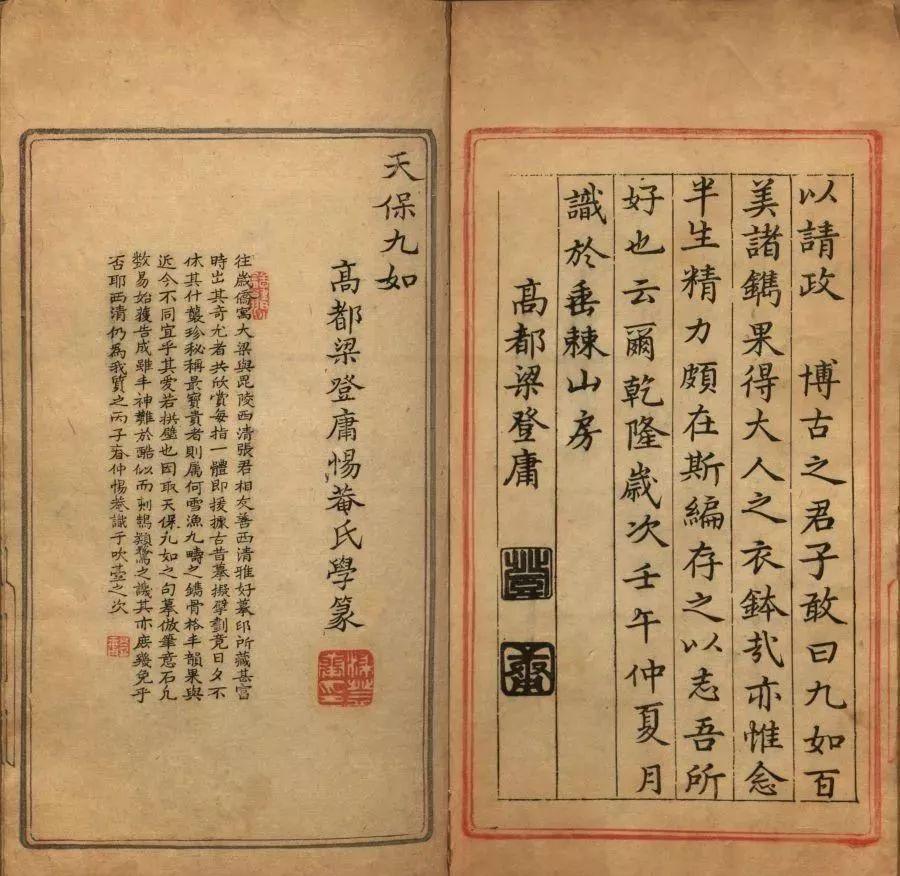 以請政　博古之君子敢曰九如百
美諸鐫果得大人之衣鉢㢤亦惟念
半生精力頗在斯編存之以志吾所
好也云爾乾隆歲次壬午仲夏月
識於垂棘山房
高都梁登庸
登
庸
天保九如
高都梁登庸惕菴氏學篆
往歲僑寓大梁與毘陵西清張君相友善西清雅好摹印所藏甚富
時出其奇尤者共欣賞每指一體即援據古昔摹擬擘劃竟日夕不
休其什襲珍秘稱最寶貴者則属何雪漁九疇之鐫骨格丰韻果與
近今不同宜乎其愛若拱璧也因取天保九如之句摹倣筆意石凢
数易始獲告成雖丰神難於酷似而刺鵠類鶩之譏其亦庶幾免乎
否耶西清仍為我質之丙子春仲惕菴識于吹臺之次